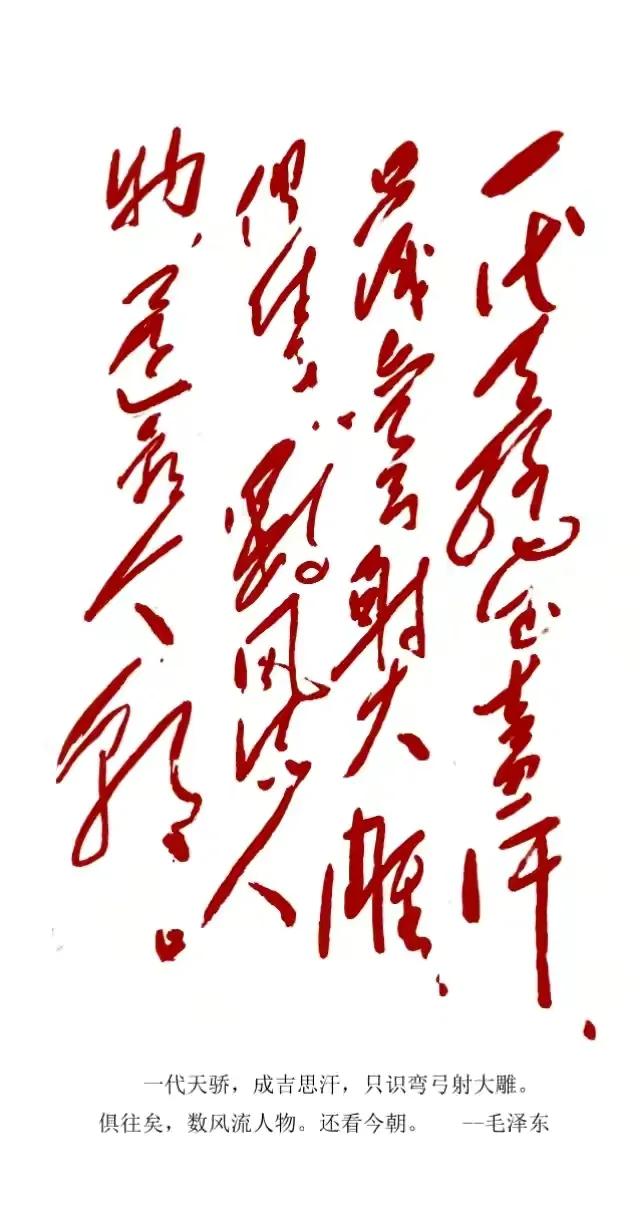 一代天驕成吉思汗，
只識彎弓射大雕，
俱往矣，數风流人
物，還看今朝。
一代天骄，成吉思汗，只识弯弓射大雕。
俱往矣，数风流人物。还看今朝。 --毛泽东